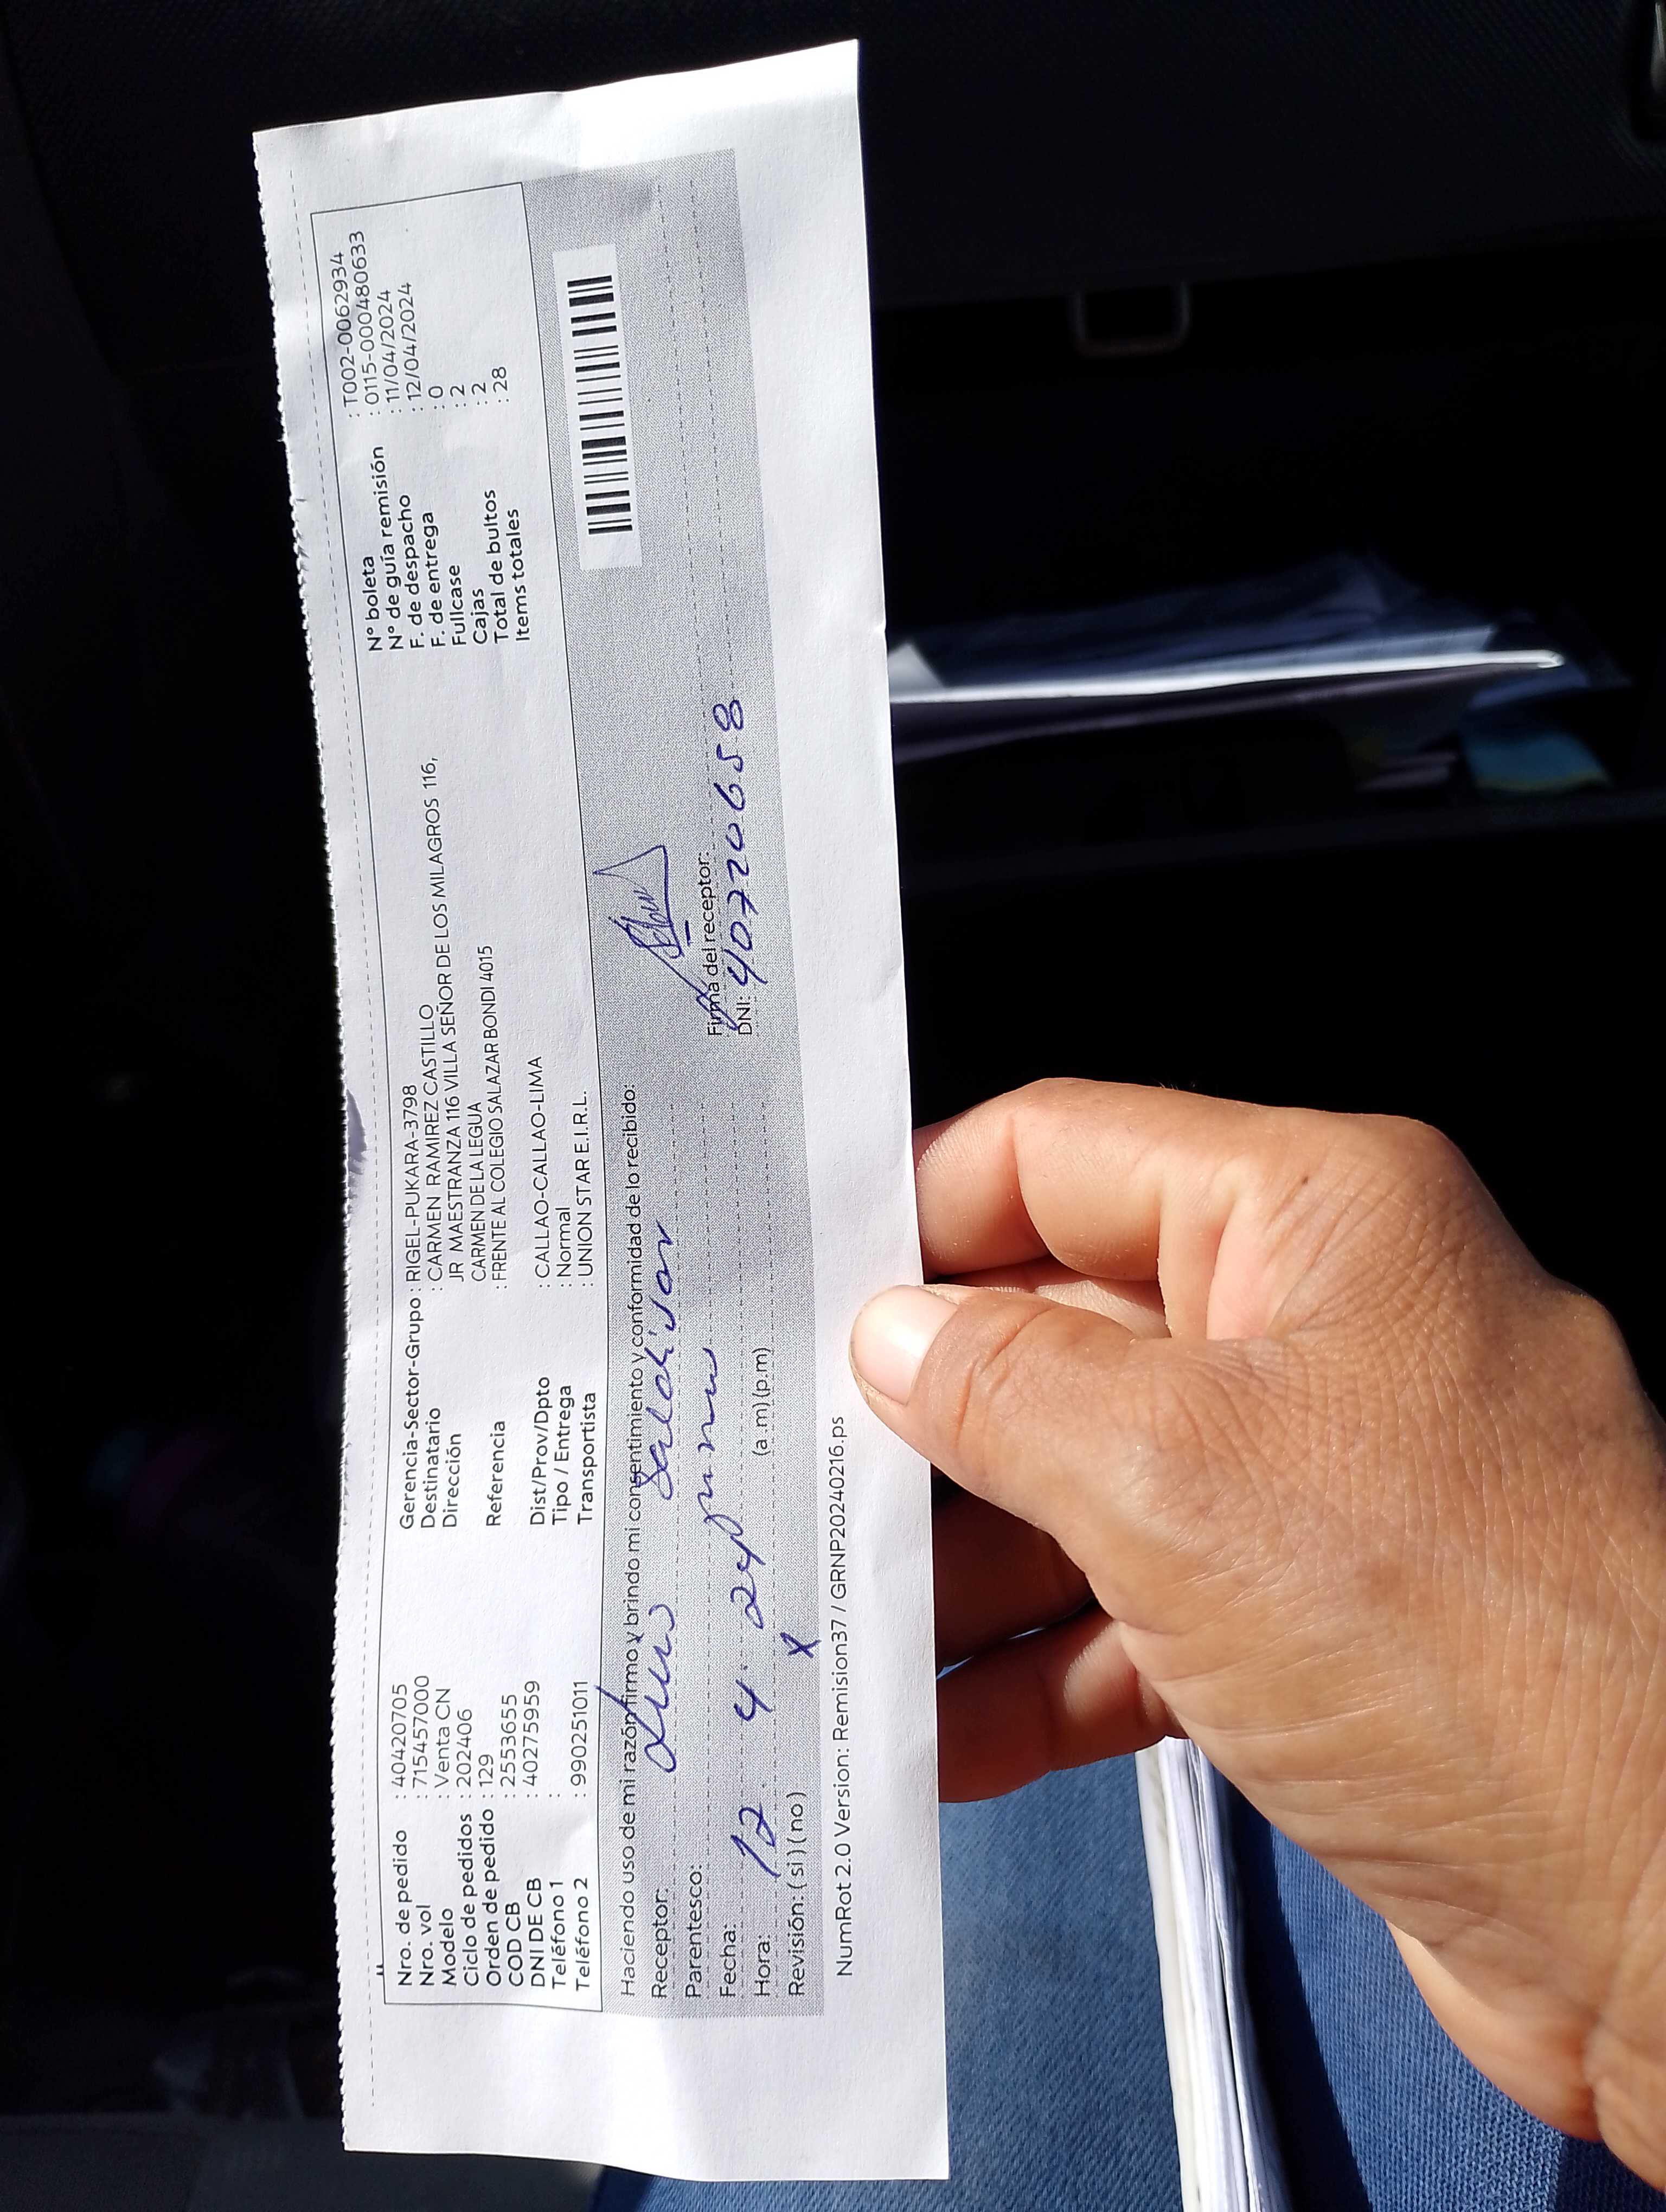 Nro. de pedido : 40420705
Nro. vol : 715457000
Modelo : Venta CN
Ciclo de pedidos : 202406
Orden de pedido : 129
COD CB : 2553655
DNI DE CB : 40275959
Teléfono 1 :
Teléfono 2 : 990251011
Gerencia-Sector-Grupo : RIGEL-PUKARA-3798
Destinatario : CARMEN RAMIREZ CASTILLO
Dirección JR MAESTRANZA 116 VILLA SEÑOR DE LOS MILAGROS 116,
CARMEN DE LA LEGUA
Referencia : FRENTE AL COLEGIO SALAZAR BONDI 4015
Dist/Prov/Dpto : CALLAO-CALLAO-LIMA
Tipo / Entrega : Normal
Transportista : UNION STAR E.I.R.L.
N° boleta : T002-0062934
N° de guía remisión : 0115-000480633
F. de despacho : 11/04/2024
F. de entrega : 12/04/2024
Fullcase : 0
Cajas : 2
Total de bultos : 2
Items totales : 28
Haciendo uso de mi razón firmo y brindo mi consentimiento y conformidad de lo recibido:
Receptor: Luis Saldivar
Parentesco:
Fecha: 12 4 24
Hora: (a.m) (p.m)
Revisión: ( si ) ( no ) X
Firma del receptor:
DNI: 40720658
NumRot 2.0 Version: Remision37 / GRNP20240216.ps